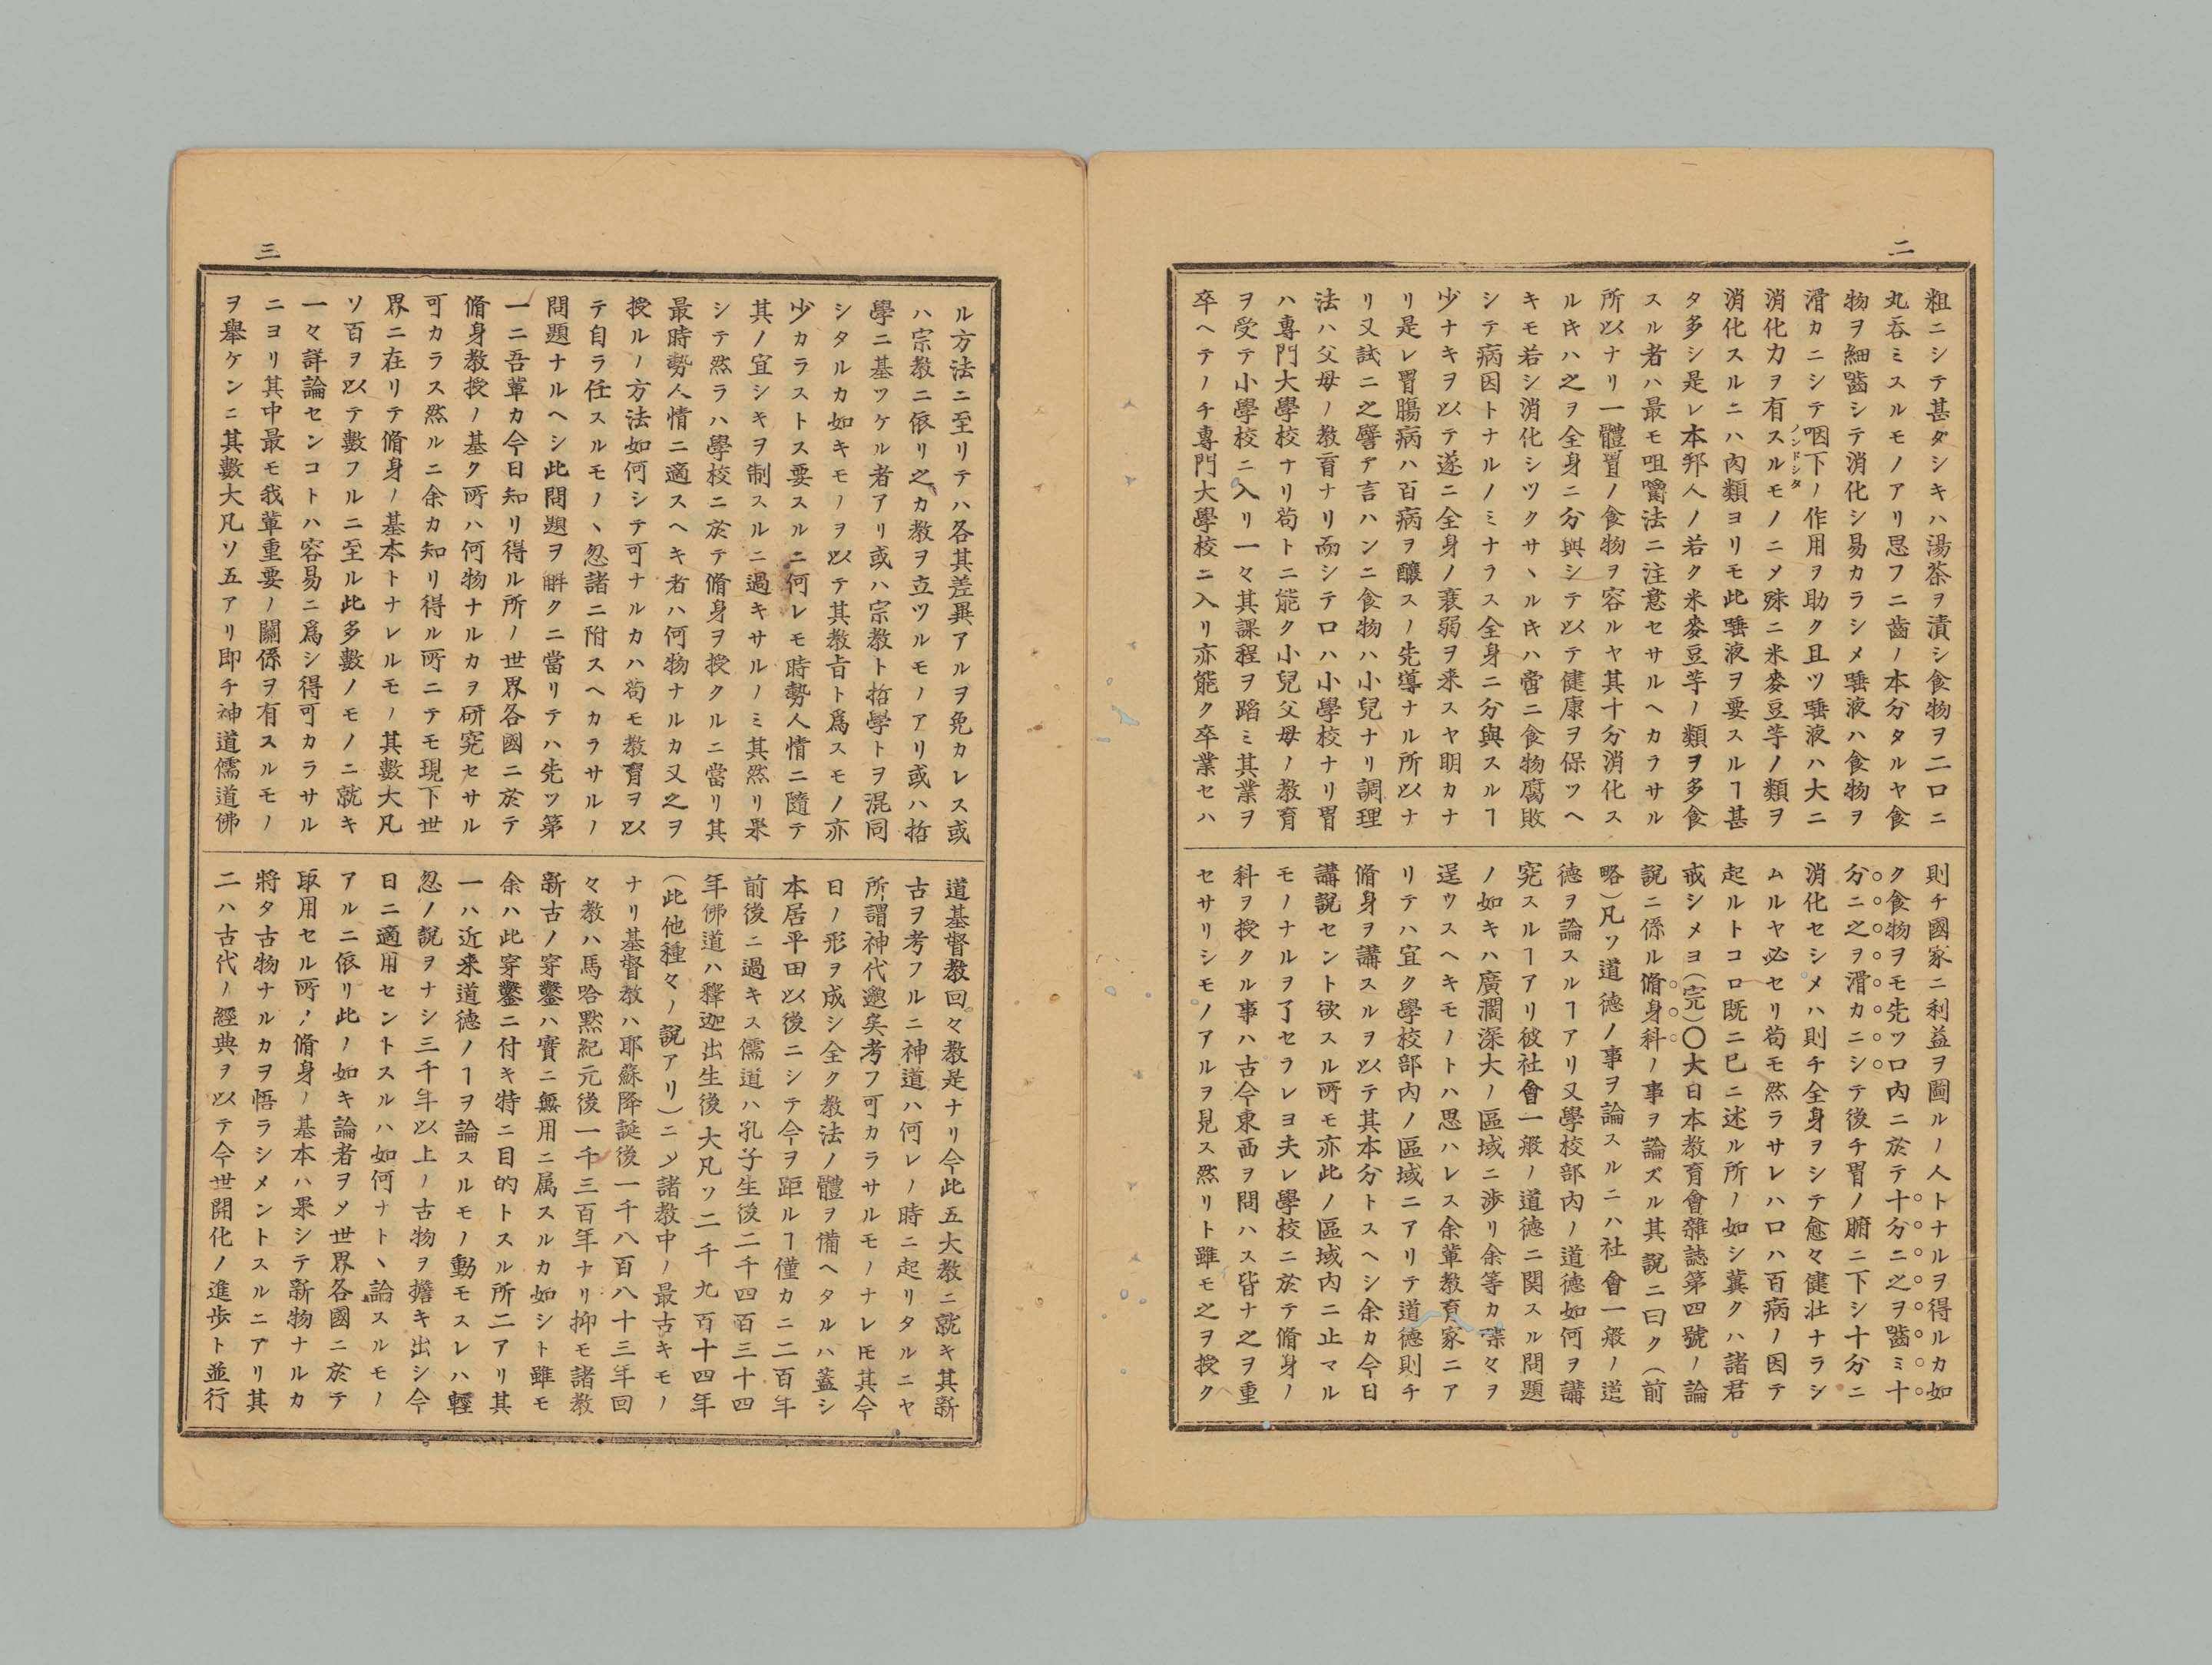 二
粗ニシテ甚ダシキハ湯茶ヲ漬シ食物ヲ二口ニ
丸呑ミスルモノアリ思フニ齒ノ本分タルヤ食
物ヲ細齧シテ消化シ易カラシメ唾液ハ食物ヲ
滑カニシテ咽下ノ作用ヲ助ク且ツ唾液ハ大ニ
ノンドシタ
消化力ヲ有スルモノニメ殊ニ米麥豆等ノ類ヲ
消化スルニハ肉類ヨリモ此唾液ヲ要スルヿ甚
タ多シ是レ本邦人ノ若ク米麥豆等ノ類ヲ多食
スル者ハ最モ咀嚼法ニ注意セサルヘカラサル
所以ナリ一體胃ノ食物ヲ容ルヤ其十分消化ス
ルキハ之ヲ全身ニ分與シテ以テ健康ヲ保ツヘ
キモ若シ消化シツクサヽルキハ啻ニ食物腐敗
シテ病因トナルノミナラス全身ニ分與スルヿ
少ナキヲ以テ遂ニ全身ノ衰弱ヲ来スヤ明カナ
リ是レ胃腸病ハ百病ヲ釀スノ先導ナル所以ナ
リ又試ニ之譬ヲ言ハンニ食物ハ小兒ナリ調理
法ハ父母ノ教育ナリ而シテ口ハ小學校ナリ胃
ハ專門大學校ナリ苟トニ能ク小兒父母ノ教育
ヲ受テ小學校ニ入リ一々其課程ヲ蹈ミ其業ヲ
卒ヘテノチ專門大學校ニ入リ亦能ク卒業セハ
則チ國家ニ利益ヲ圖ルノ人トナルヲ得ルカ如
ク食物ヲモ先ツ口内ニ於テ十分ニ之ヲ齧ミ十
分ニ之ヲ滑カニシテ後チ胃ノ腑ニ下シ十分ニ
消化セシメハ則チ全身ヲシテ愈々健壯ナラシ
ムルヤ必セリ苟モ然ラサレハ口ハ百病ノ因テ
起ルトコロ既ニ已ニ述ル所ノ如シ冀クハ諸君
戒シメヨ(完)〇大日本教育會雜誌第四號ノ論
説ニ係ル脩身科ノ事ヲ論ズル其説ニ曰ク(前
略)凡ソ道德ノ事ヲ論スルニハ社會一般ノ道
德ヲ論スルヿアリ又學校部内ノ道德如何ヲ講
究スルヿアリ彼社會一般ノ道德ニ関スル問題
ノ如キハ廣濶深大ノ區域ニ渉リ余等カ喋々ヲ
逞ウスヘキモノトハ思ハレス余輩教育家ニア
リテハ宜ク學校部内ノ區域ニアリテ道德則チ
脩身ヲ講スルヲ以テ其本分トスヘシ余カ今日
講説セント欲スル所モ亦此ノ區域内ニ止マル
モノナルヲ了セラレヨ夫レ學校ニ於テ脩身ノ
科ヲ授クル事ハ古今東西ヲ問ハス皆ナ之ヲ重
セサリシモノアルヲ見ス然リト雖モ之ヲ授ク
三
ル方法ニ至リテハ各其差異アルヲ免カレス或
ハ宗教ニ依リ之カ教ヲ立ツルモノアリ或ハ哲
學ニ基ツケル者アリ或ハ宗教ト哲學トヲ混同
シタルカ如キモノヲ以テ其教旨ト爲スモノ亦
少カラストス要スルニ何レモ時勢人情ニ隨テ
其ノ宜シキヲ制スルニ過キサルノミ其然リ果
シテ然ラハ學校ニ於テ脩身ヲ授クルニ當リ其
最時勢人情ニ適スヘキ者ハ何物ナルカ又之ヲ
授ルノ方法如何シテ可ナルカハ苟モ教育ヲ以
テ自ラ任スルモノヽ忽諸ニ附スヘカラサルノ
問題ナルヘシ此問題ヲ解クニ當リテハ先ツ第
一ニ吾輩カ今日知リ得ル所ノ世界各國ニ於テ
脩身教授ノ基ク所ハ何物ナルカヲ研究セサル
可カラス然ルニ余カ知リ得ル所ニテモ現下世
界ニ在リテ脩身ノ基本トナレルモノ其數大凡
ソ百ヲ以テ數フルニ至ル此多數ノモノニ就キ
一々詳論センコトハ容易ニ爲シ得可カラサル
ニヨリ其中最モ我輩重要ノ關係ヲ有スルモノ
ヲ舉ケンニ其數大凡ソ五アリ即チ神道儒道佛
道基督教回々教是ナリ今此五大教ニ就キ其新
古ヲ考フルニ神道ハ何レノ時ニ起リタルニヤ
所謂神代邈矣考フ可カラサルモノナレ𪜈其今
日ノ形ヲ成シ全ク教法ノ體ヲ備ヘタルハ蓋シ
本居平田以後ニシテ今ヲ距ルヿ僅カニ二百年
前後ニ過キス儒道ハ孔子生後二千四百三十四
年佛道ハ釋迦出生後大凡ソ二千九百十四年
(此他種々ノ説アリ)ニメ諸教中ノ最古キモノ
ナリ基督教ハ耶蘇降誕後一千八百八十三年回
々教ハ馬哈黙紀元後一千三百年ナリ抑モ諸教
新古ノ穿鑿ハ實ニ無用ニ属スルカ如シト雖モ
余ハ此穿鑿ニ付キ特ニ目的トスル所二アリ其
一ハ近来道德ノヿヲ論スルモノ動モスレハ輕
忽ノ説ヲナシ三千年以上ノ古物ヲ擔キ出シ今
日ニ適用セントスルハ如何ナトヽ論スルモノ
アルニ依リ此ノ如キ論者ヲメ世界各國ニ於テ
取用セル所ノ脩身ノ基本ハ果シテ新物ナルカ
將タ古物ナルカヲ悟ラシメントスルニアリ其
二ハ古代ノ經典ヲ以テ今世開化ノ進歩ト並行